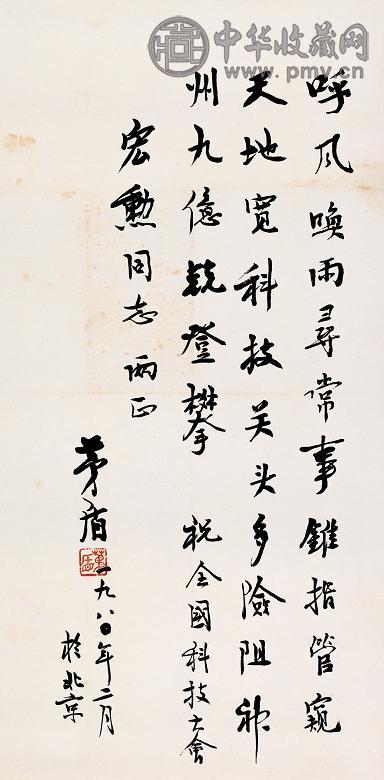 中华收藏网
www.pmyv.cn
呼风喚雨尋常事錐指管窺
天地宽科技关头多險阻神
州九億竞登攀 祝全國科技大會
宏勲同志两正
茅盾 一九八〇年二月
於北京